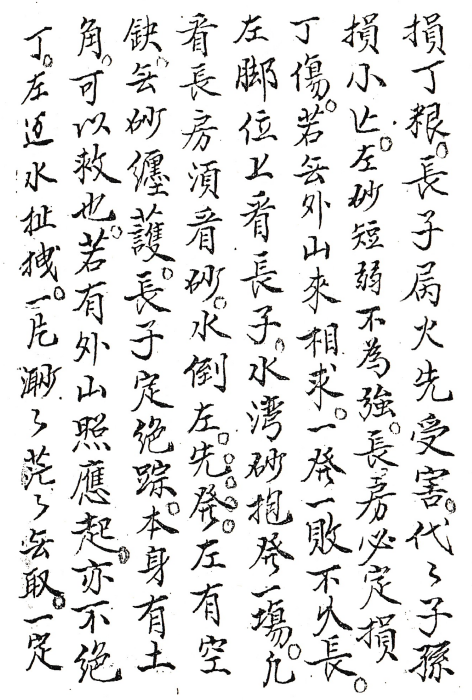 損丁粮。長子属火先受害。代々子孫
損小亡。左砂短弱不為強。長房必定損
丁傷。若无外山來相求。一發一敗不久長。
左脚位上看長子。水湾砂抱發一場。凡
看長房須看砂。水倒左。先。發。左有空
缺。无砂纏護。長子定绝踪。本身有土
角。可以救也。若有外山照應起。亦不绝
丁。左边水扯拽。一片渺々茫々无取。一定